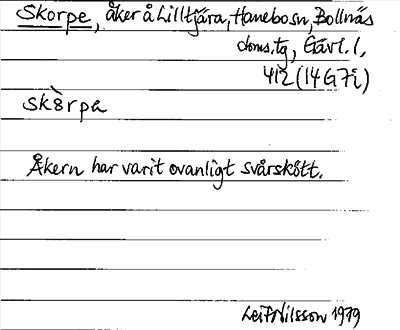 Skorpe, åker å Lilltjära, Hanebosn, Bollnäs
doms.tg, Gävl. l,
412 (14G7i)
skòrpa
Åkern har varit ovanligt svårskött.
Leif Nilsson 1979